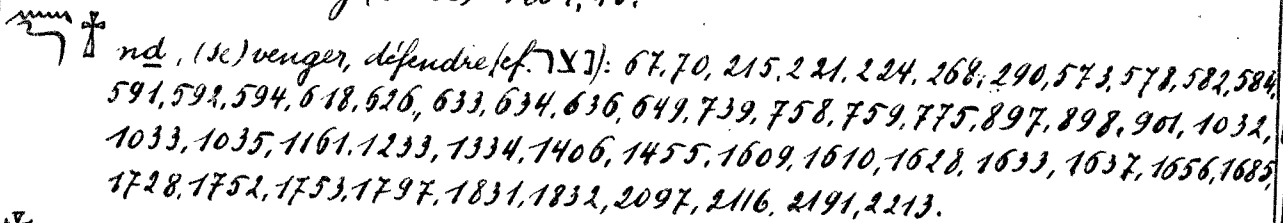 nḏ, (se) venger, défendre (cf. נצר): 67, 70, 215, 221, 224, 268, 290, 573, 578, 582, 584,
591, 592, 594, 618, 626, 633, 634, 636, 649, 739, 758, 759, 775, 897, 898, 901, 1032,
1033, 1035, 1161, 1233, 1334, 1406, 1455, 1609, 1610, 1628, 1633, 1637, 1656, 1685,
1728, 1752, 1753, 1797, 1831, 1832, 2097, 2116, 2191, 2213.